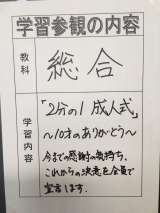 学習参観の内容
教科
総合
学習内容
「2分の1成人式」
～10才のありがとう～
今までの感謝の気持ち、
これからの決意を全員で
宣言します。